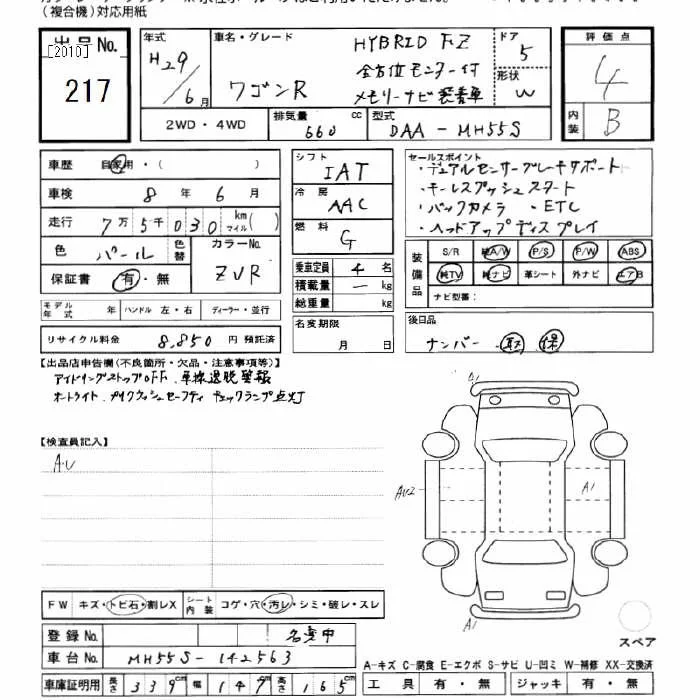 （複合機）対応用紙
出品No.
[2010]
217
年式
H29/6月
車名・グレード
ワゴンR
HYBRID FZ
全方位モニター付
メモリーナビ装着車
ドア
5
形状
W
評価点
4
内装
B
2WD・4WD
排気量 660 cc
型式 DAA-MH55S
車歴 自家用・（ ）
車検 8年 6月
走行 7万5千030 km マイル( )
色 パール 色替
カラーNo. ZVR
保証書 有・無
モデル年式 年 ハンドル 左・右 ディーラー・並行
リサイクル料金 8,850 円 預託済
シフト
IAT
冷房
AAC
燃料
G
乗車定員 4 名
積載量 ー kg
総重量 kg
名変期限
月 日
セールスポイント
・デュアルセンサーブレーキサポート
・キーレスプッシュスタート
・バックカメラ ・ETC
・ヘッドアップディスプレイ
装備品
S/R 純A/W P/S P/W ABS
純TV 純ナビ 革シート 外ナビ エアB
ナビ型番：
後日品
ナンバー 取 保
【出品店申告欄（不良箇所・欠品・注意事項等）】
アイドリングストップOFF 車線逸脱警報
オートライト チェックランプ点灯
【検査員記入】
AU
A1
AU2
A1
A1
FW キズ・トビ石・割レX
シート内装 コゲ・穴・汚レ・シミ・破レ・スレ
登録No. 名変中
車台No. MH55S-142563
車庫証明用 長さ 339cm 幅 147cm 高さ 165cm
スペア
A-キズ C-腐食 E-エクボ S-サビ U-凹ミ W-補修 XX-交換済
工具 有・無 ジャッキ 有・無